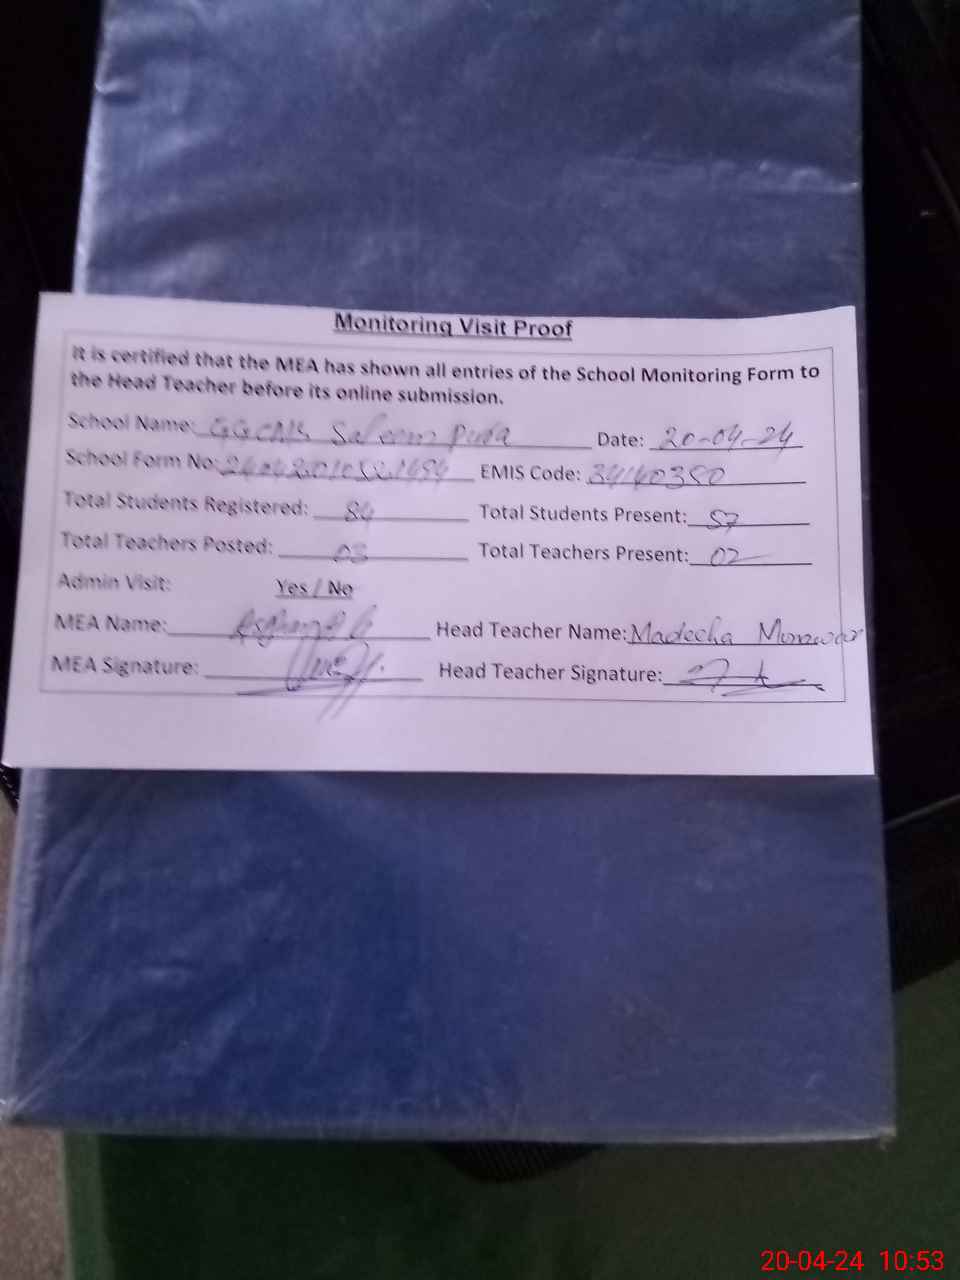 Monitoring Visit Proof
It is certified that the MEA has shown all entries of the School Monitoring Form to
the Head Teacher before its online submission.
School Name: Saleem Pura Date: 20-04-24
School Form No: EMIS Code: 34140350
Total Students Registered: 84 Total Students Present: 57
Total Teachers Posted: 03 Total Teachers Present: 02
Admin Visit: Yes / No
MEA Name: Head Teacher Name: Madeeha Monawar
MEA Signature: Head Teacher Signature:
20-04-24 10:53